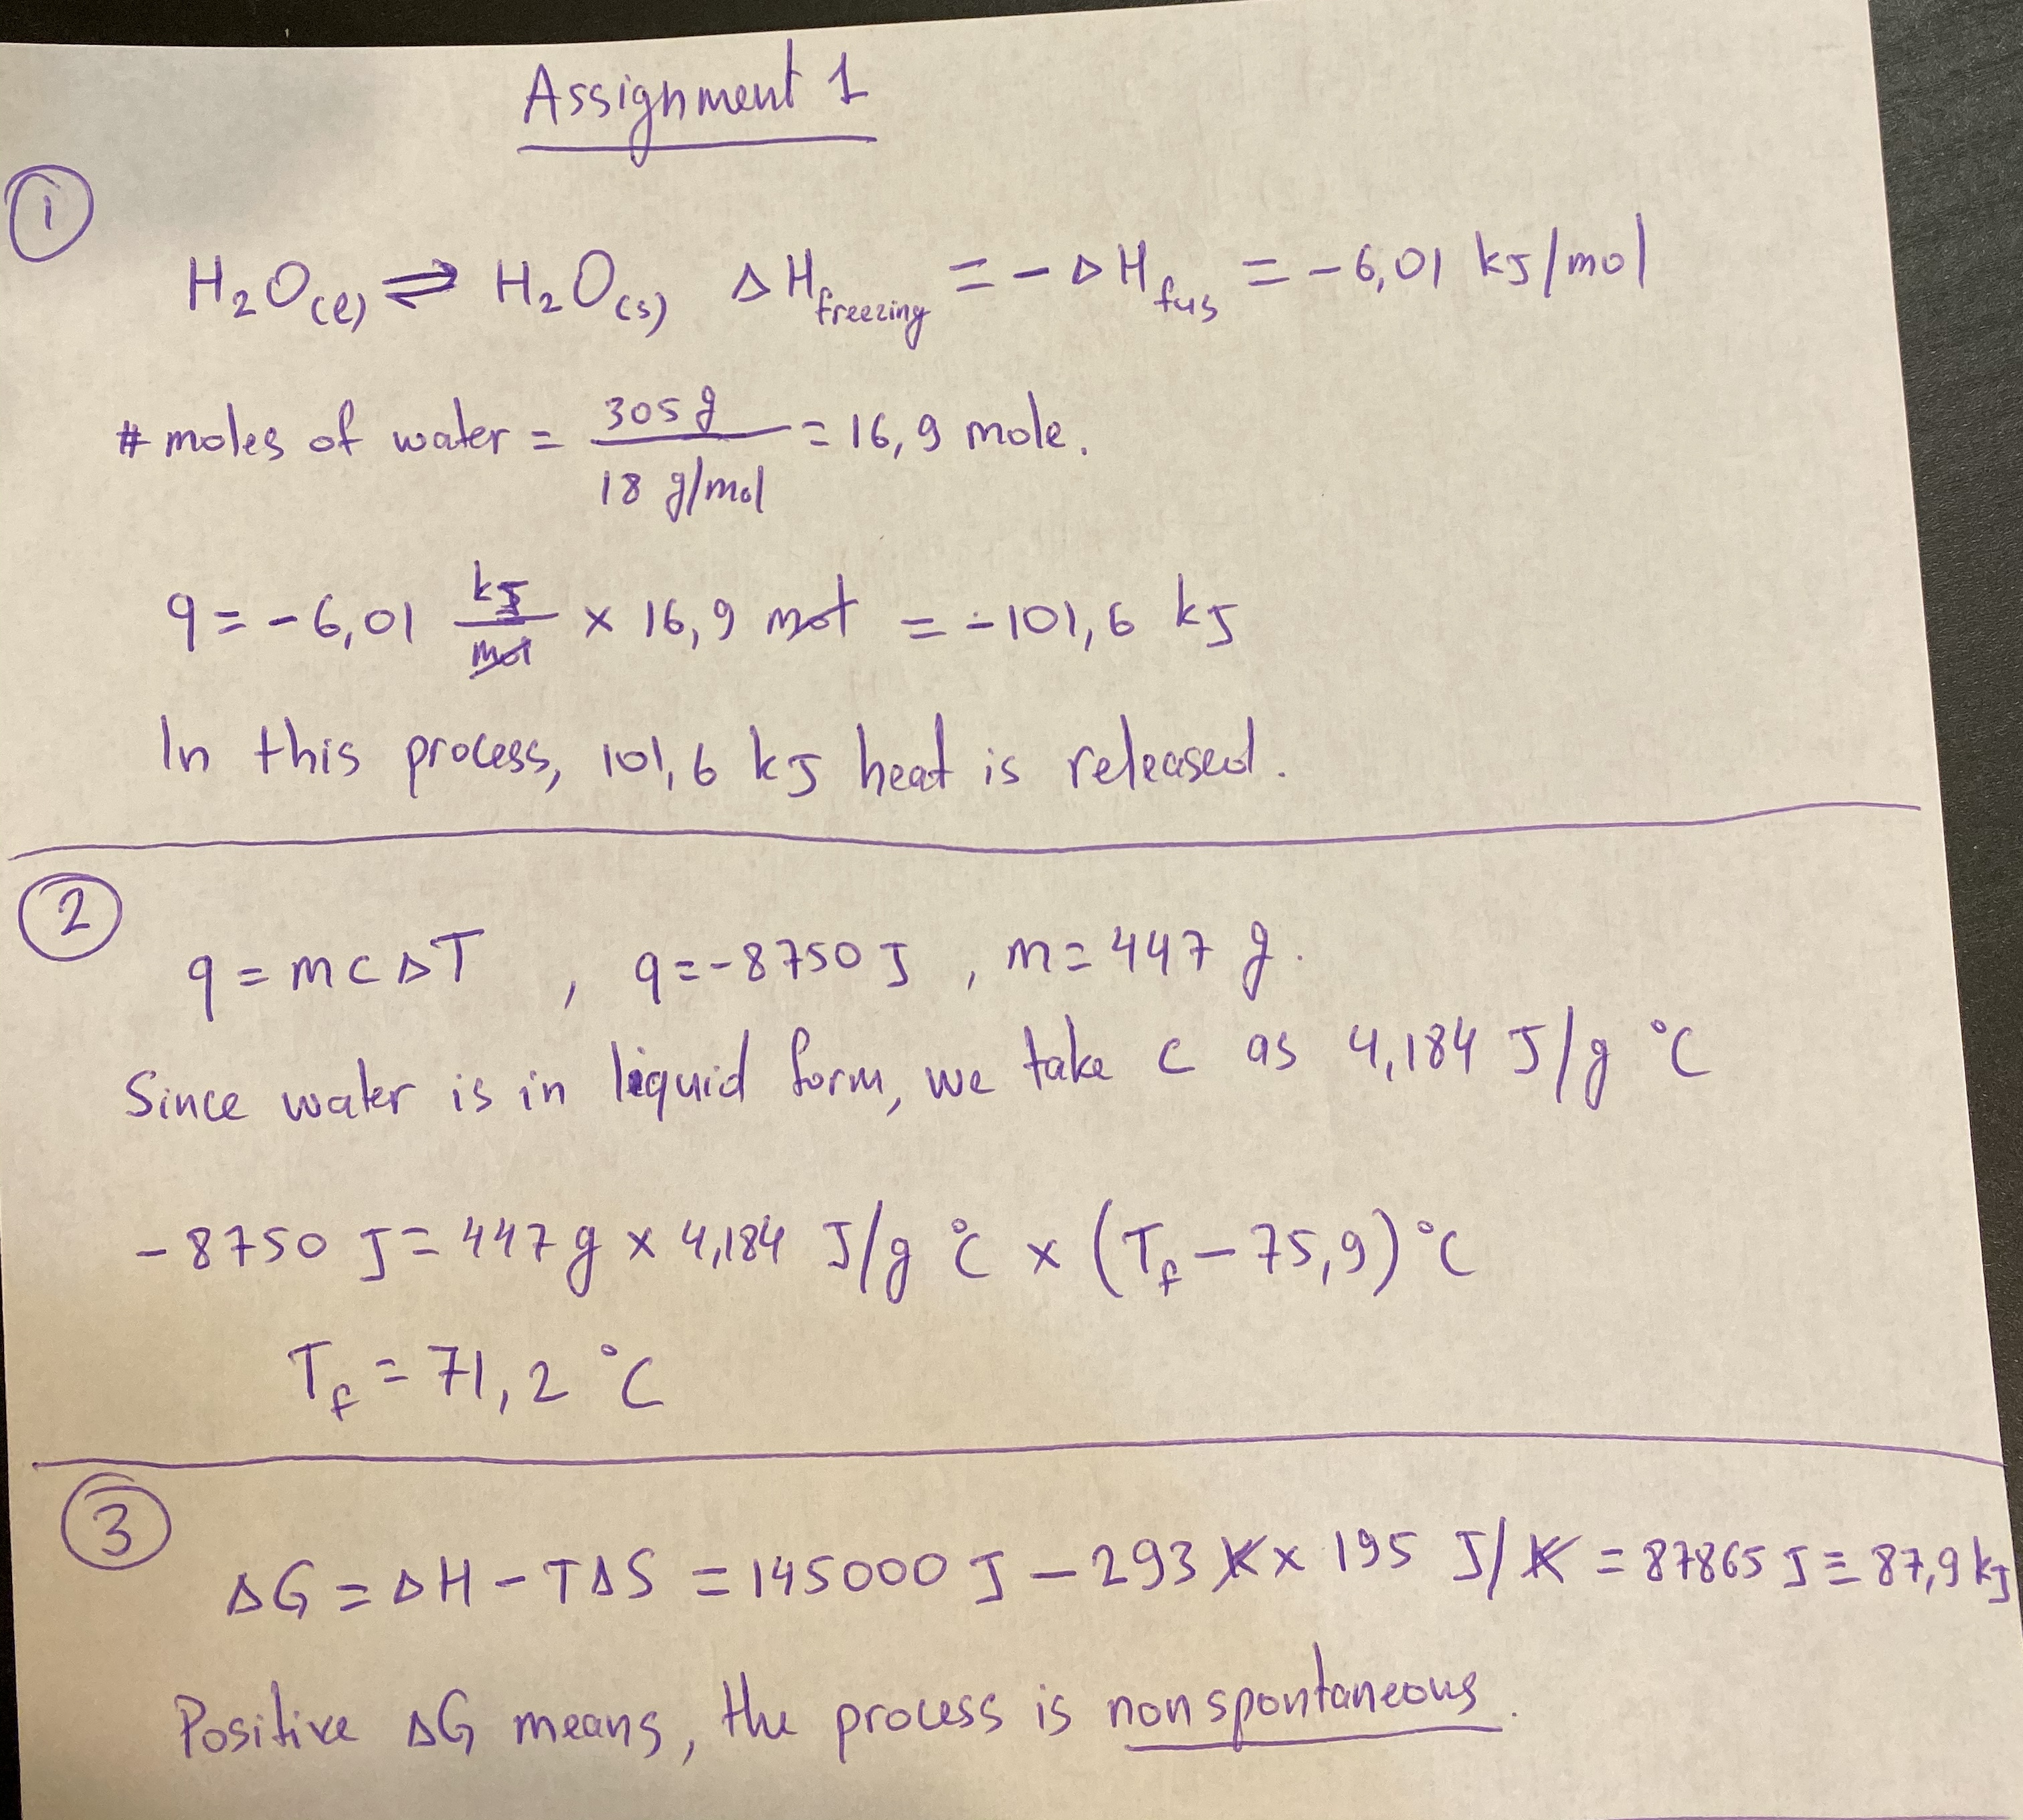 Assignment 1
①
H₂O(l) ⇌ H₂O(s) ΔH freezing = - ΔH fus = -6,01 kJ/mol
# moles of water = 305 g / 18 g/mol = 16,9 mole.
q = -6,01 kJ/mol × 16,9 mol = -101,6 kJ
In this process, 101,6 kJ heat is released.
②
q = mcΔT , q = -8750 J , m = 447 g.
Since water is in liquid form, we take c as 4,184 J/g °C
-8750 J = 447 g × 4,184 J/g °C × (Tf - 75,9) °C
Tf = 71,2 °C
③
ΔG = ΔH - TΔS = 145000 J - 293 K × 195 J/K = 87865 J = 87,9 kJ
Positive ΔG means, the process is nonspontaneous.